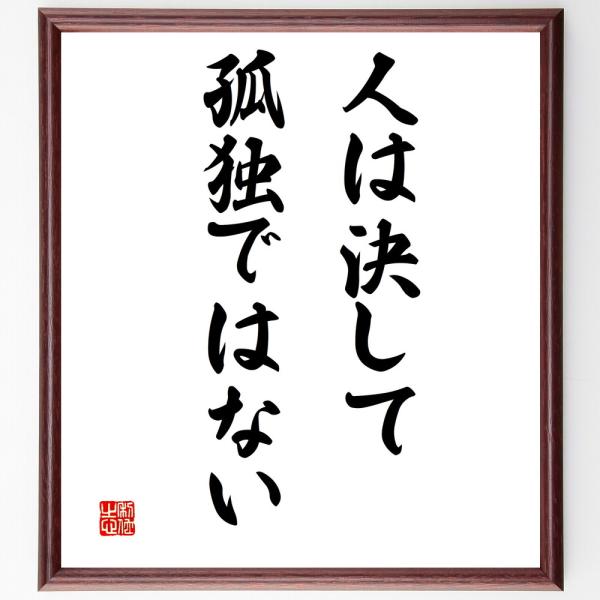 人は決して
孤独ではない